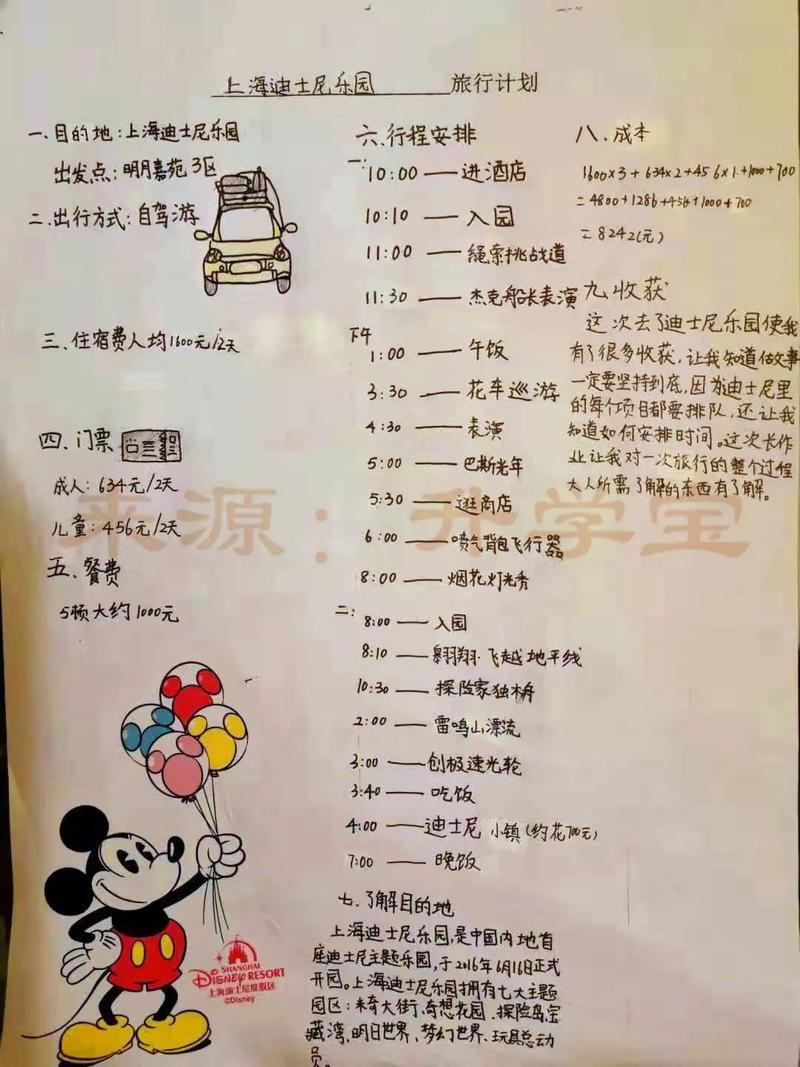 上海迪士尼乐园 旅行计划
一、目的地：上海迪士尼乐园
出发点：明月嘉苑3区
二、出行方式：自驾游
三、住宿费人均1600元/2天
四、门票
成人：634元/2天
儿童：456元/2天
五、餐费
5顿大约1000元
六、行程安排
一：
10:00——进酒店
10:10——入园
11:00——绳索挑战道
11:30——杰克船长表演
下午
1:00——午饭
3:30——花车巡游
4:30——表演
5:00——巴斯光年
5:30——逛商店
6:00——喷气背包飞行器
8:00——烟花灯光秀
二：
8:00——入园
8:10——翱翔·飞越地平线
10:30——探险家独木舟
2:00——雷鸣山漂流
3:00——创极速光轮
3:40——吃饭
4:00——迪士尼小镇(约花700元)
7:00——晚饭
七、了解目的地
上海迪士尼乐园,是中国内地首
座迪士尼主题乐园,于2016年6月16日正式
开园。上海迪士尼乐园拥有七大主题
园区：米奇大街、奇想花园、探险岛、宝
藏湾、明日世界、梦幻世界、玩具总动
员。
八、成本
1600×3+634×2+456×1+1000+700
=4800+1286+456+1000+700
=8242(元)
九、收获
这次去了迪士尼乐园使我
有了很多收获,让我知道做故事
一定要坚持到底,因为迪士尼里
的每个项目都要排队,还让我
知道如何安排时间。这次长作
业让我对一次旅行的整个过程
大人所需了解的东西有了解。
SHANGHAI
DISNEY RESORT
上海迪士尼度假区
©Disney
来源：升学宝